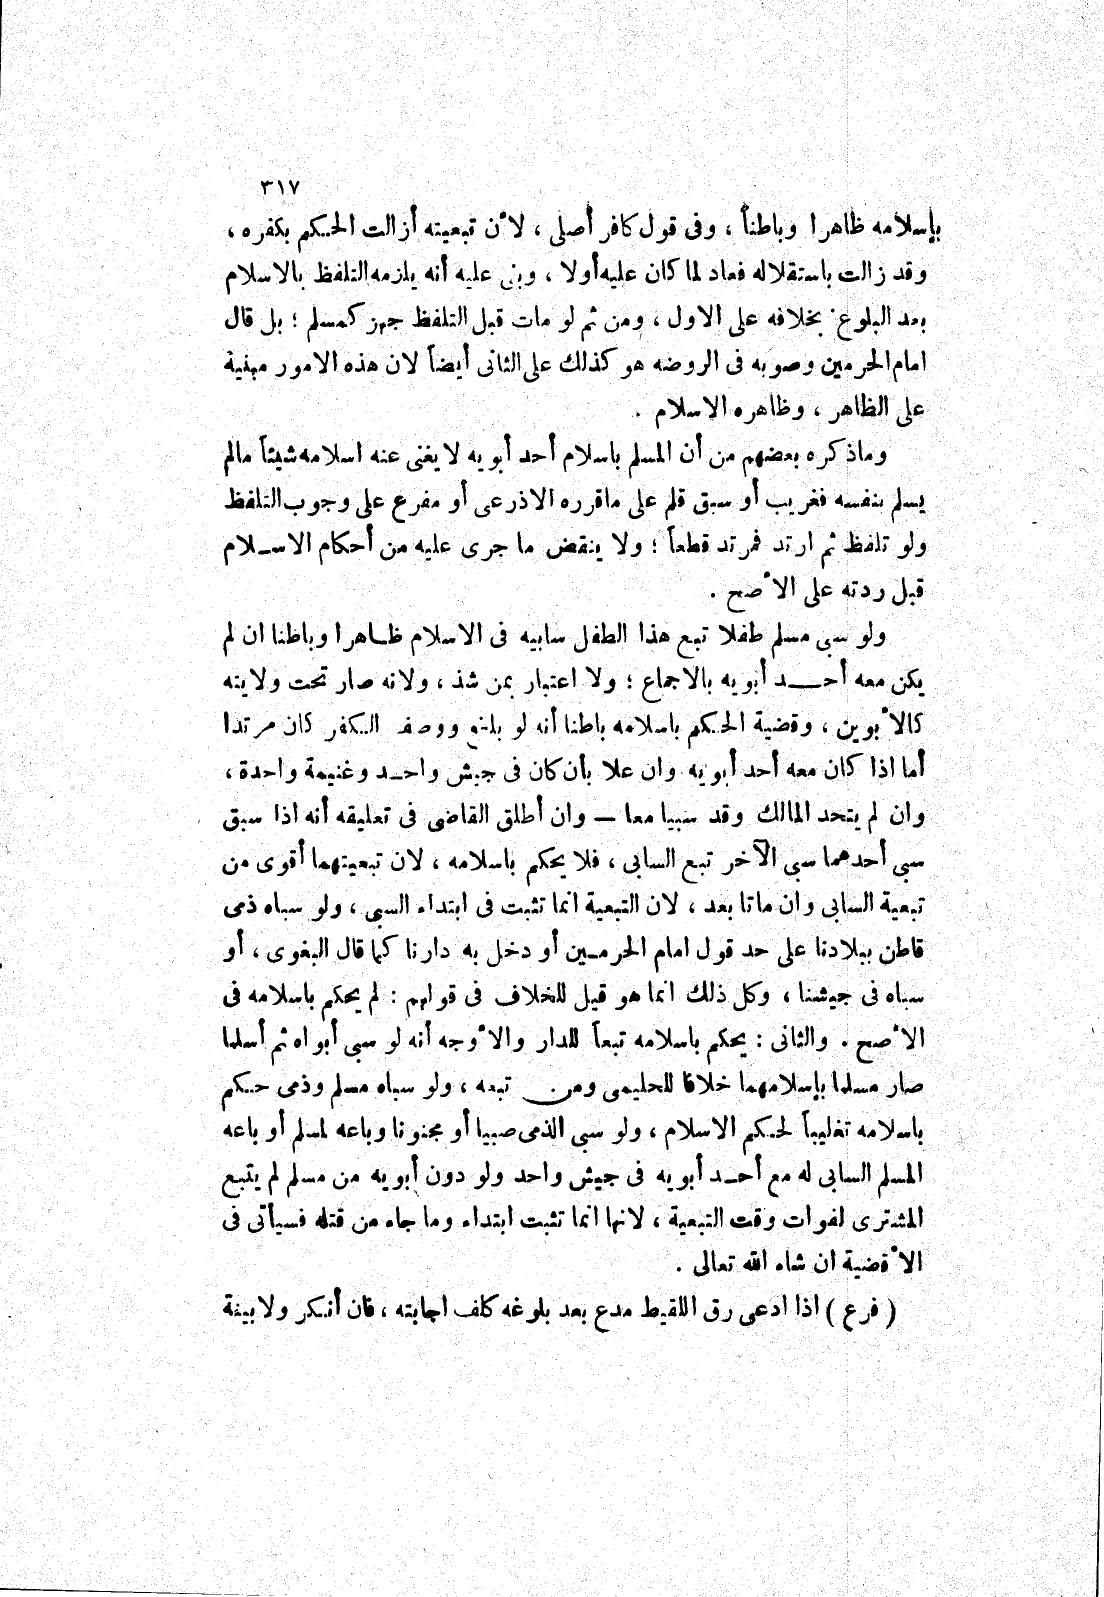 ٣١٧
بإسلامه ظاهرا وباطناً ، وفى قول كافر أصلى ، لأن تبعيته أزالت الحكم بكفره ،
وقد زالت باستقلاله فعاد لما كان عليه أولا ، وبنى عليه أنه يلزمه التلفظ بالاسلام
بعد البلوغ بخلافه على الاول ، ومن ثم لو مات قبل التلفظ جهز كمسلم ؛ بل قال
امام الحرمين وصوبه فى الروضه هو كذلك على الثانى أيضاً لان هذه الامور مبنية
على الظاهر ، وظاهره الاسلام .
وماذكره بعضهم من أن المسلم باسلام أحد أبويه لا يغنى عنه اسلامه شيئاً مالم
يسلم بنفسه فغريب أو سبق قلم على ماقرره الاذرعى أو مفرع على وجوب التلفظ
ولو تلفظ ثم ارتد فمرتد قطعاً ؛ ولا ينقض ما جرى عليه من أحكام الاسلام
قبل ردته على الأصح .
ولو سبى مسلم طفلا تبع هذا الطفل سابيه فى الاسلام ظاهرا وباطنا ان لم
يكن معه أحد أبويه بالاجماع ؛ ولا اعتبار بمن شذ ، ولانه صار تحت ولايته
كالأبوين ، وقضية الحكم باسلامه باطنا أنه لو بلغ ووصف الكفر كان مرتدا
أما اذا كان معه أحد أبويه وان علا بأن كان فى جيش واحد وغنيمة واحدة ،
وان لم يتحد المالك وقد سبيا معا — وان أطلق القاضى فى تعليقه أنه اذا سبق
سبى أحدهما سبى الآخر تبع السابى ، فلا يحكم باسلامه ، لان تبعيتهما أقوى من
تبعية السابى وان ماتا بعد ، لان التبعية انما تثبت فى ابتداء السبى ، ولو سباه ذمى
قاطن ببلادنا على حد قول امام الحرمين أو دخل به دارنا كما قال البغوى ، أو
سباه فى جيشنا ، وكل ذلك انما هو قيل للخلاف فى قولهم : لم يحكم باسلامه فى
الأصح . والثانى : يحكم باسلامه تبعاً للدار والأوجه أنه لو سبى أبواه ثم أسلما
صار مسلما بإسلامهما خلافا للحليمى ومن تبعه ، ولو سباه مسلم وذمى حكم
باسلامه تغليباً لحكم الاسلام ، ولو سبى الذمى صبيا أو مجنونا وباعه لمسلم أو باعه
المسلم السابى له مع أحد أبويه فى جيش واحد ولو دون أبويه من مسلم لم يتبع
المشترى لفوات وقت التبعية ، لانها انما تثبت ابتداء وما جاء من قتله فسيأتى فى
الأقضية ان شاء الله تعالى .
( فرع ) اذا ادعى رق اللقيط مدع بعد بلوغه كلف اجابته ، فان أنكر ولا بينة